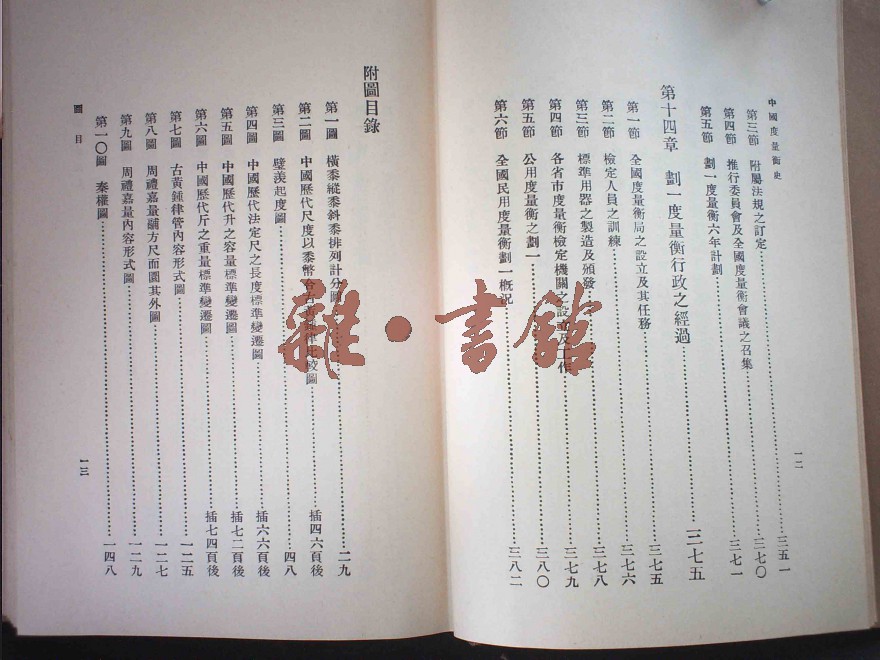 中國度量衡史
第三節　附屬法規之訂定…………三五一
第四節　推行委員會及全國度量衡會議之召集…………三七〇
第五節　劃一度量衡六年計劃…………三七一
第十四章　劃一度量衡行政之經過…………三七五
第一節　全國度量衡局之設立及其任務…………三七五
第二節　檢定人員之訓練…………三七六
第三節　標準用器之製造及頒發…………三七八
第四節　各省市度量衡檢定機關之設立及工作…………三七九
第五節　公用度量衡之劃一…………三八〇
第六節　全國民用度量衡劃一概況…………三八二
一二
附圖目錄
第一圖　橫黍縱黍斜黍排列計分圖…………二九
第二圖　中國歷代尺度以黍幣合古黃鍾律比較圖…………插四六頁後
第三圖　璧羨起度圖…………四八
第四圖　中國歷代法定尺之長度標準變遷圖…………插六六頁後
第五圖　中國歷代升之容量標準變遷圖…………插七二頁後
第六圖　中國歷代斤之重量標準變遷圖…………插七四頁後
第七圖　古黃鍾律管內容形式圖…………一二五
第八圖　周禮嘉量鬴方尺而圜其外圖…………一二七
第九圖　周禮嘉量內容形式圖…………一二九
第一〇圖　秦權圖…………一四八
圖目
一三
雜·書館